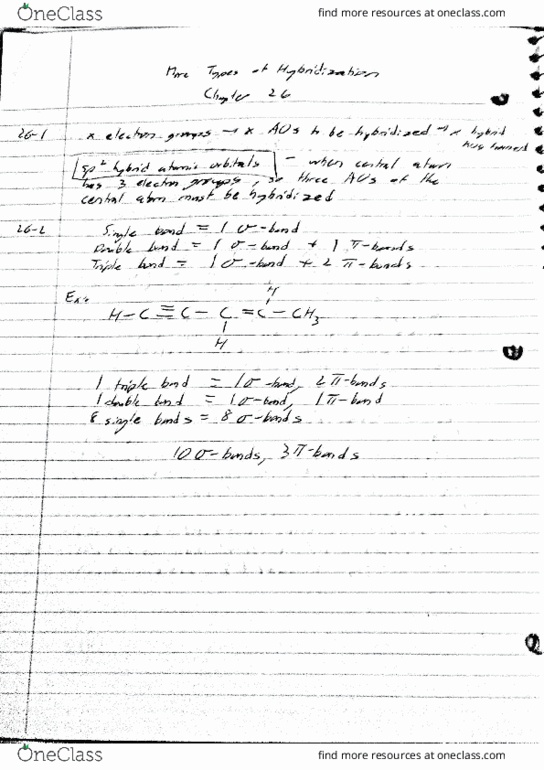 OneClass find more resources at oneclass.com
More Types of Hybridization
Chapter 26
26-1 x electron groups → x AOs to be hybridized → x hybrid
AOs formed
sp² hybrid atomic orbitals - when central atom
has 3 electron groups, so three AOs of the
central atom must be hybridized
26-2 Single bond = 1 σ-bond
Double bond = 1 σ-bond + 1 π-bonds
Triple bond = 1 σ-bond + 2 π-bonds
Ex:
H
H-C≡C-C=C-CH₃
H
1 triple bond = 1σ-bond, 2π-bonds
1 double bond = 1σ-bond, 1π-bond
8 single bonds = 8 σ-bonds
10 σ-bonds, 3π-bonds
OneClass find more resources at oneclass.com